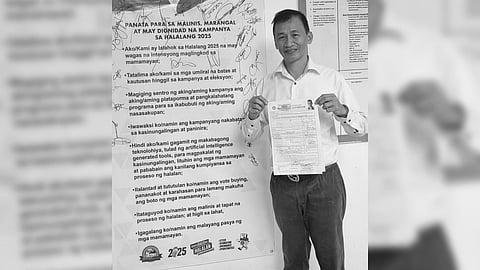 PANATA PARA SA MALINIS, MARANGAL
AT MAY DIGNIDAD NA KAMPANYA
SA HALALANG 2025
• Ako/Kami ay lalahok sa Halalang 2025 na may
wagas na intensyong maglingkod sa
mamamayan;
• Tatalima ako/kami sa mga umiiral na batas at
kautusan hinggil sa kampanya at eleksyon;
• Magiging sentro ng aking/aming kampanya ang
aking/aming plataporma at pangkalahatang
programa para sa ikabubuti ng aking/aming
nasasakupan;
• Iwawaksi ko/namin ang kampanyang nakabatay
sa kasinungalingan at paninira;
• Hindi ako/kami gagamit ng makabagong
teknolohiya, tulad ng artificial intelligence
generated tools, para magpakalat ng
kasinungalingan, lituhin ang mga mamamayan
at pababain ang kanilang kumpiyansa sa
proseso ng halalan;
• Ilalantad at tututulan ko/namin ang vote buying,
pananakot at karahasan para lamang makuha
ang boto ng mga mamamayan;
• Itataguyod ko/namin ang malinis at tapat na
proseso ng halalan; at higit sa lahat,
• Igagalang ko/namin ang malayang pasya ng
mga mamamayan.
2025